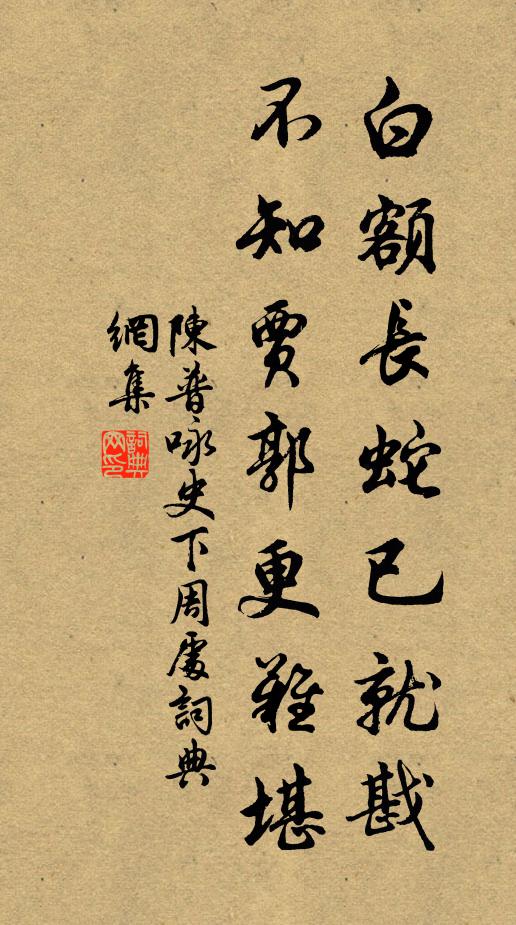 白額長蛇已就戡
不知賈郭更難堪
陳普咏史下周處詞典
網集
詞典
網印